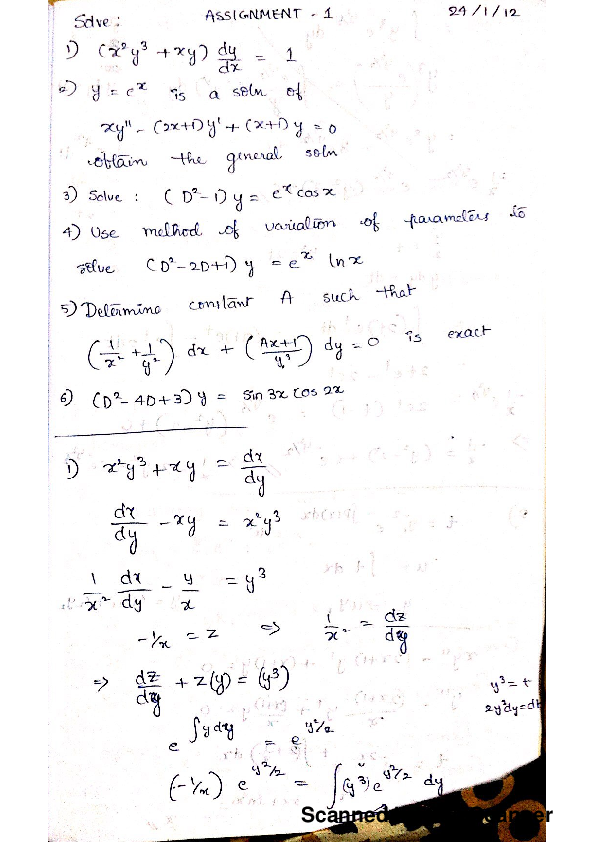 ASSIGNMENT - 1
24/1/12
Solve:
1) (x²y³ + xy) dy/dx = 1
2) y = eˣ is a soln of
xy" - (2x+1)y' + (x+1)y = 0
obtain the general soln
3) Solve : (D²-1)y = eˣ cos x
4) Use method of variation of parameters to
solve (D²-2D+1)y = eˣ ln x
5) Determine constant A such that
(1/x² + 1/y²) dx + (Ax+1/y³) dy = 0 is exact
6) (D²-4D+3)y = sin 3x cos 2x
1) x²y³ + xy = dx/dy
dx/dy - xy = x²y³
1/x² dx/dy - y/x = y³
-1/x = z ⇒ 1/x² = dz/dy
⇒ dz/dy + z(y) = (y³)
y³ = t
2y²dy = dt
e^∫y dy = e^y²/2
(-1/x) e^y²/2 = ∫(y³)e^y²/2 dy